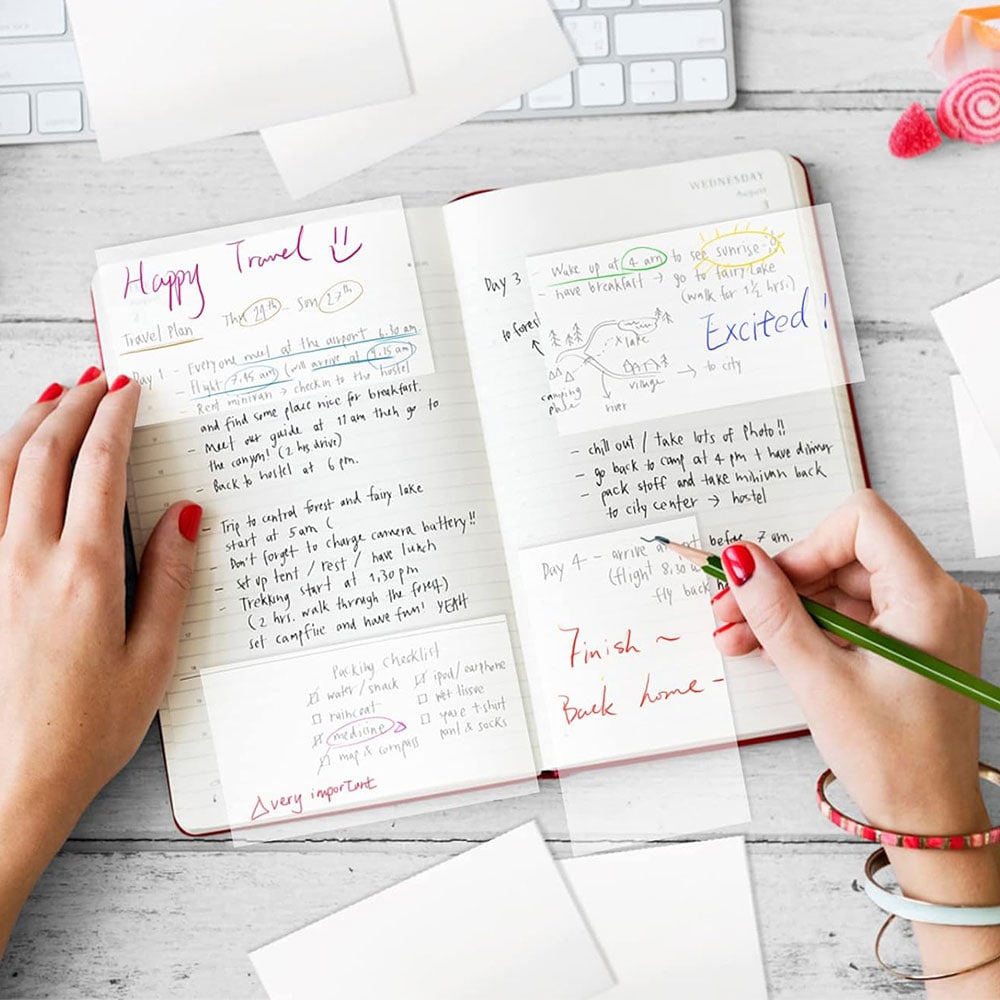 Happy Travel
Travel Plan
Thu 24th - Son 27th
Day 1 - Everyone meet at the airport 6.30 am
- Flight 7.45 am (will arrive at 9.15 am)
- Rent minivan → check in to the hostel
and find some place nice for breakfast.
- Meet our guide at 11 am then go to
the canyon! (2 hrs drive)
- Back to hostel at 6 pm.
- Trip to central forest and fairy lake
start at 5 am (
- Don't forget to charge camera battery!!
- set up tent / rest / have lunch
- Trekking start at 1,30 pm
(2 hrs. walk through the forest)
- set campfire and have fun! YEAH
Packing checklist
water / snack
raincoat
medicine
map & compass
ipod / earphone
wet tissue
spare t-shirt
pant & socks
very important
WEDNESDAY
August
1
Day 3
- Wake up at 4 am to see sunrise
- have breakfast → go to fairy lake
(walk for 1 1/2 hrs.)
Excited!
to forest
lake
camping place
river
village
→ to city
- chill out / take lots of photo!!
- go back to camp at 4 pm + have dinner
- pack stoff and take minivan back
to city center → hostel
Day 4 - arrive before 7 am.
(flight 8,30
fly back
Finish ~
Back home -